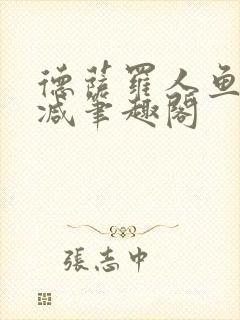 德薩羅人魚
減筆趣閣
張志中